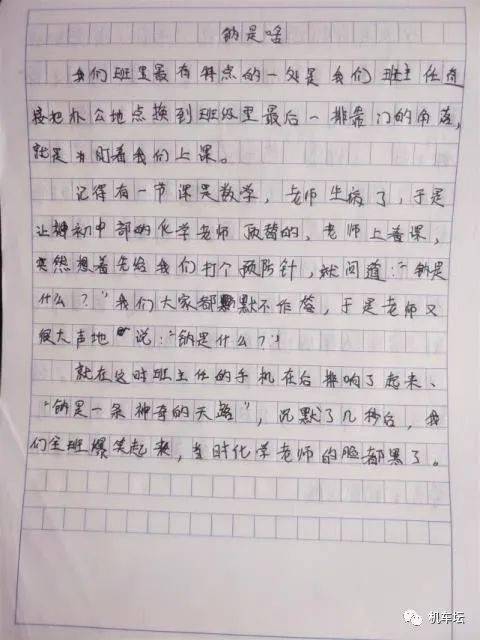 钠是啥
我们班里最有特点的一处是我们班主任直
接把办公地点换到班级里最后一排靠门的角落,
就是为盯着我们上课。
记得有一节课是数学,老师生病了,于是
让初中部的化学老师顶替的,老师上着课,
突然想着先给我们打个预防针,就问道:“钠是
什么?”我们大家都默不作答,于是老师又
很大声地说:“钠是什么?”
就在这时班主任的手机在后排响了起来、
“钠是一条神奇的天路”,沉默了几秒后,我
们全班爆笑起来,当时化学老师的脸都黑了。
机车坛